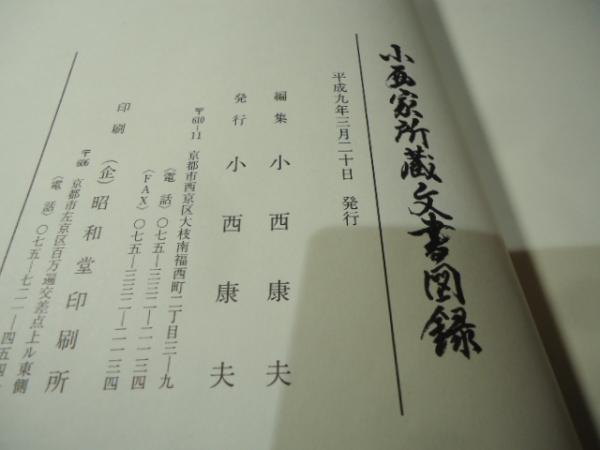 小西家所蔵文書図録
平成九年三月二十日　発行
編集　小西康夫
発行　小西康夫
〒610-11　京都市西京区大枝南福西町二丁目三―九
（電話）〇七五―三三二―一一三四
（FAX）〇七五―三三二―一一三四
印刷　（企）昭和堂印刷所
〒606　京都市左京区百万遍交差点上ル東側
（電話）〇七五―七二一―四五四